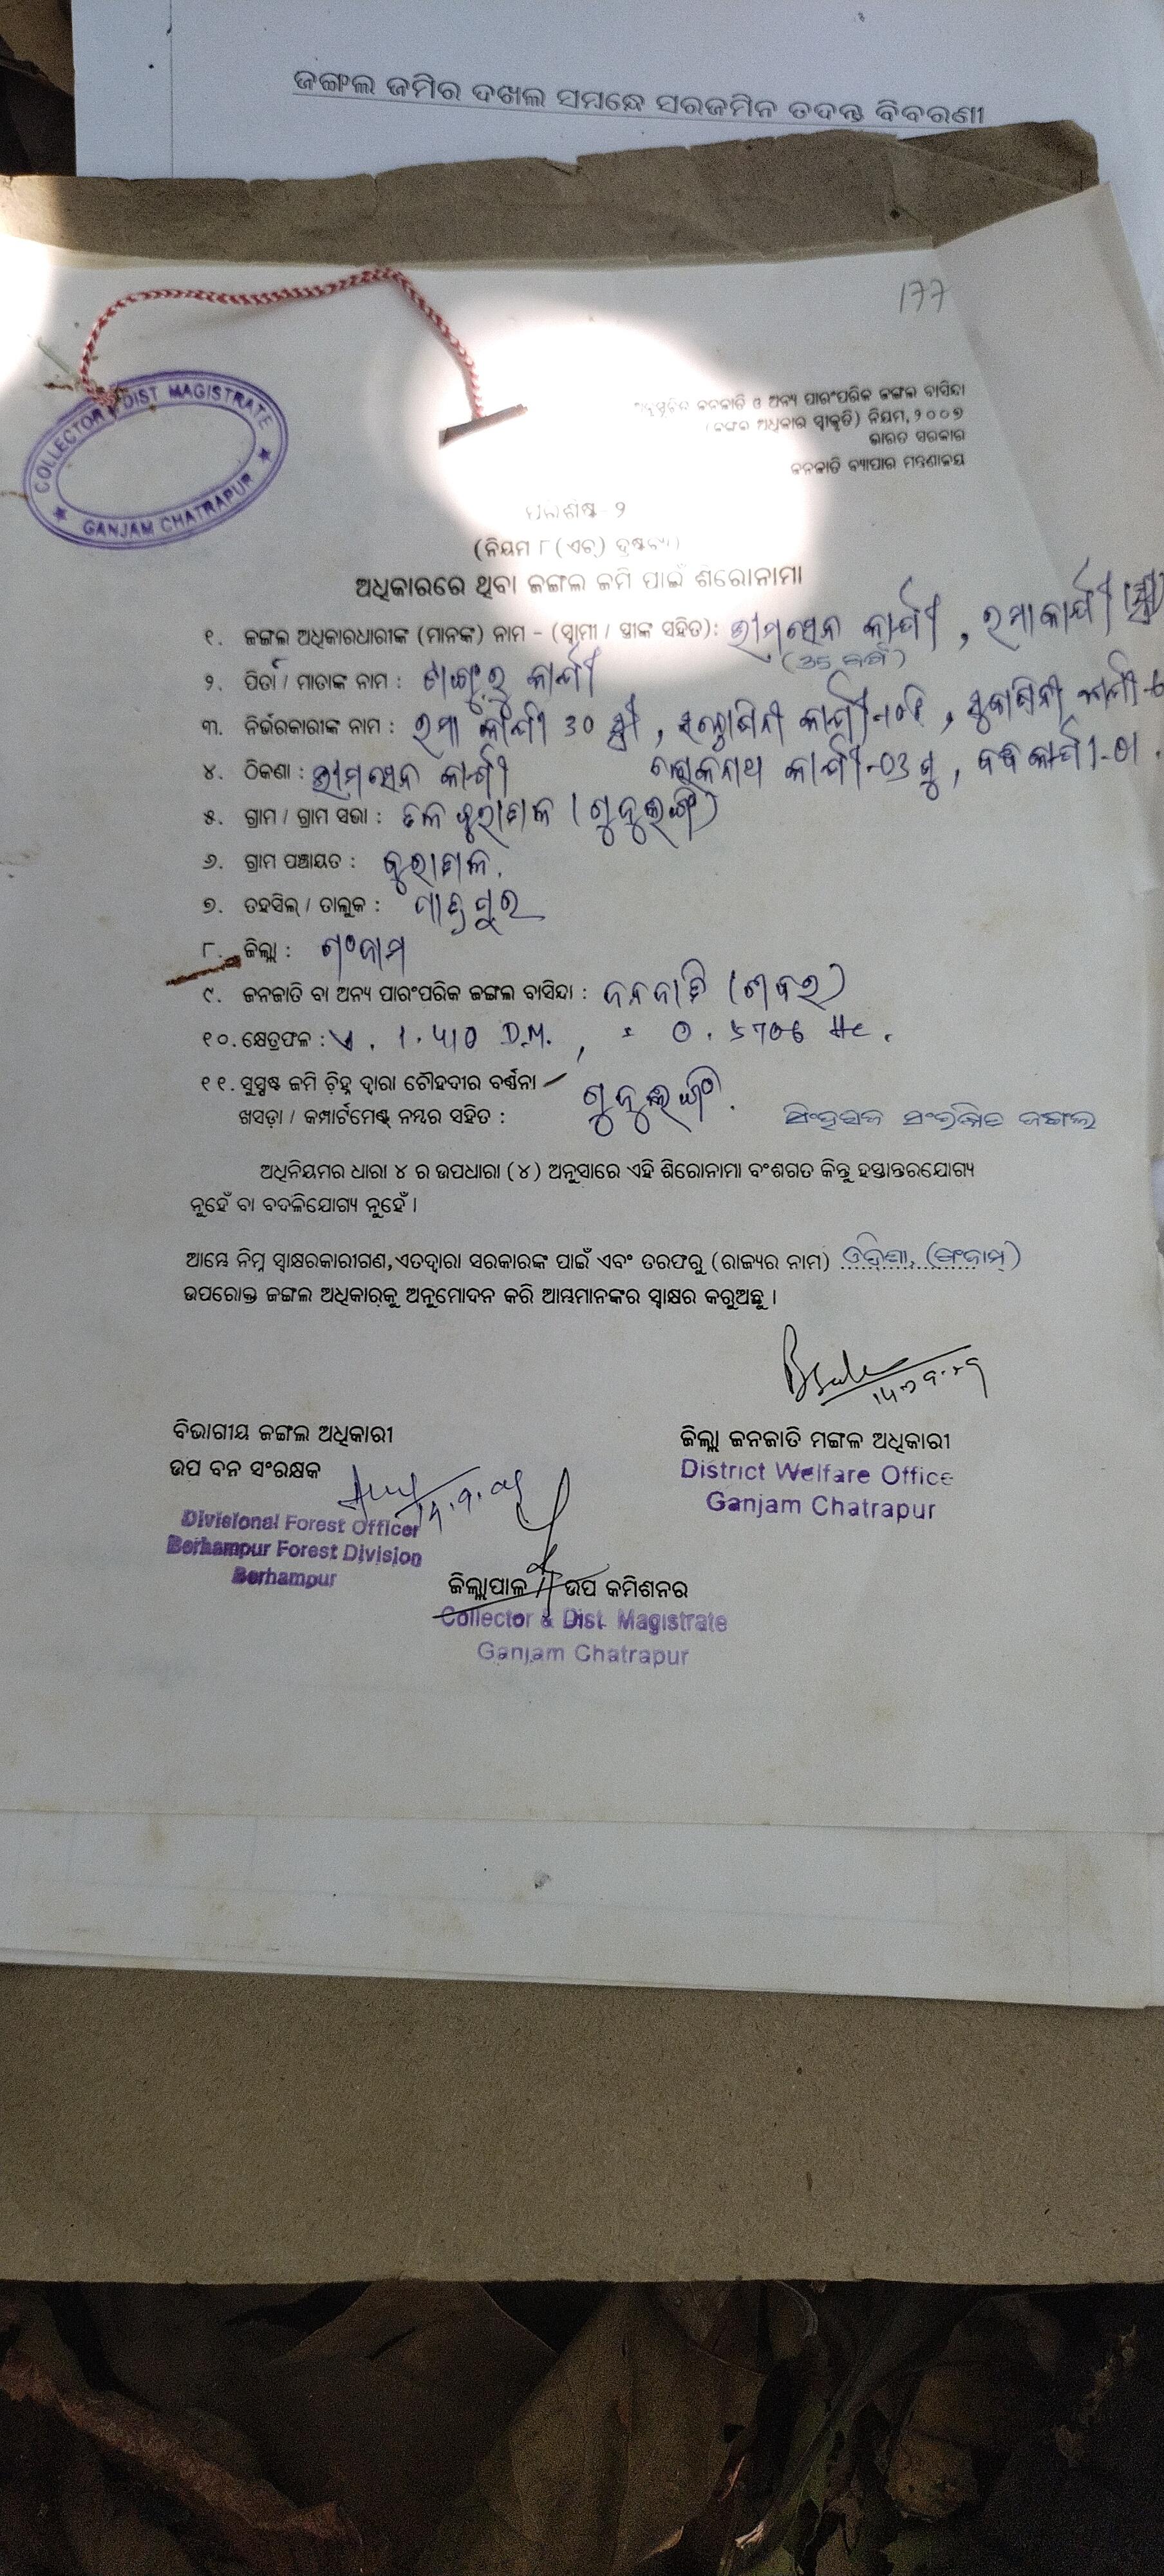 ଜଙ୍ଗଲ ଜମିର ଦଖଲ ସମନ୍ଧେ ସରଜମିନ ତଦନ୍ତ ବିବରଣୀ
177
COLLECTOR DIST MAGISTRATE
GANJAM CHATRAPUR
ଜନଜାତି ଓ ଅନ୍ୟ ପାରଂପରିକ ଜଙ୍ଗଲ ବାସିନ୍ଦା
(ଜଙ୍ଗଲ ଅଧିକାର ସ୍ୱୀକୃତି) ନିୟମ, ୨୦୦୭
ଭାରତ ସରକାର
ଜନଜାତି ବ୍ୟାପାର ମନ୍ତ୍ରଣାଳୟ
- ୨
(ନିୟମ ୮ (ଏଚ୍) ଦ୍ରଷ୍ଟବ୍ୟ)
ଅଧିକାରରେ ଥିବା ଜଙ୍ଗଲ ଜମି ପାଇଁ ଶିରୋନାମା
୧. ଜଙ୍ଗଲ ଅଧିକାରଧାରୀଙ୍କ (ମାନଙ୍କ) ନାମ - (ସ୍ୱାମୀ / ସ୍ତ୍ରୀଙ୍କ ସହିତ): ଭୀମସେନ କାର୍ଯୀ, ରମା କାର୍ଯୀ (ସ୍ତ୍ରୀ)
(35 ବର୍ଷ)
୨. ପିତା / ମାତାଙ୍କ ନାମ : କାର୍ଯୀ
୩. ନିର୍ଭରକାରୀଙ୍କ ନାମ : ରମା କାର୍ଯୀ 30 ସ୍ତ୍ରୀ,
୪. ଠିକଣା : ଭୀମସେନ କାର୍ଯୀ ଲୋକନାଥ କାର୍ଯୀ-03
୫. ଗ୍ରାମ / ଗ୍ରାମ ସଭା :
୬. ଗ୍ରାମ ପଞ୍ଚାୟତ :
୭. ତହସିଲ୍ / ତାଲୁକ : ପାତ୍ରପୁର
୮. ଜିଲ୍ଲା : ଗଂଜାମ
୯. ଜନଜାତି ବା ଅନ୍ୟ ପାରଂପରିକ ଜଙ୍ଗଲ ବାସିନ୍ଦା : ଜନଜାତି (ଶବର)
୧୦. କ୍ଷେତ୍ରଫଳ : 1.410 D.M., 0.5706 Hc.
୧୧. ସୁସ୍ପଷ୍ଟ ଜମି ଚିହ୍ନ ଦ୍ୱାରା ଚୌହଦୀର ବର୍ଣ୍ଣନା
ଖସଡ଼ା / କମ୍ପାର୍ଟମେଣ୍ଟ୍ ନମ୍ବର ସହିତ : ସଂରକ୍ଷିତ ଜଙ୍ଗଲ
ଅଧିନିୟମର ଧାରା ୪ ର ଉପଧାରା (୪) ଅନୁସାରେ ଏହି ଶିରୋନାମା ବଂଶଗତ କିନ୍ତୁ ହସ୍ତାନ୍ତରଯୋଗ୍ୟ
ନୁହେଁ ବା ବଦଳିଯୋଗ୍ୟ ନୁହେଁ ।
ଆମ୍ଭେ ନିମ୍ନ ସ୍ୱାକ୍ଷରକାରୀଗଣ, ଏତଦ୍ୱାରା ସରକାରଙ୍କ ପାଇଁ ଏବଂ ତରଫରୁ (ରାଜ୍ୟର ନାମ) ଓଡ଼ିଶା, (ଗଂଜାମ୍)
ଉପରୋକ୍ତ ଜଙ୍ଗଲ ଅଧିକାରକୁ ଅନୁମୋଦନ କରି ଆମ୍ଭମାନଙ୍କର ସ୍ୱାକ୍ଷର କରୁଅଛୁ ।
ବିଭାଗୀୟ ଜଙ୍ଗଲ ଅଧିକାରୀ
ଉପ ବନ ସଂରକ୍ଷକ
Divisional Forest Officer
Berhampur Forest Division
Berhampur
ଜିଲ୍ଲା ଜନଜାତି ମଙ୍ଗଳ ଅଧିକାରୀ
District Welfare Office
Ganjam Chatrapur
ଜିଲ୍ଲାପାଳ / ଉପ କମିଶନର
Collector & Dist. Magistrate
Ganjam Chatrapur